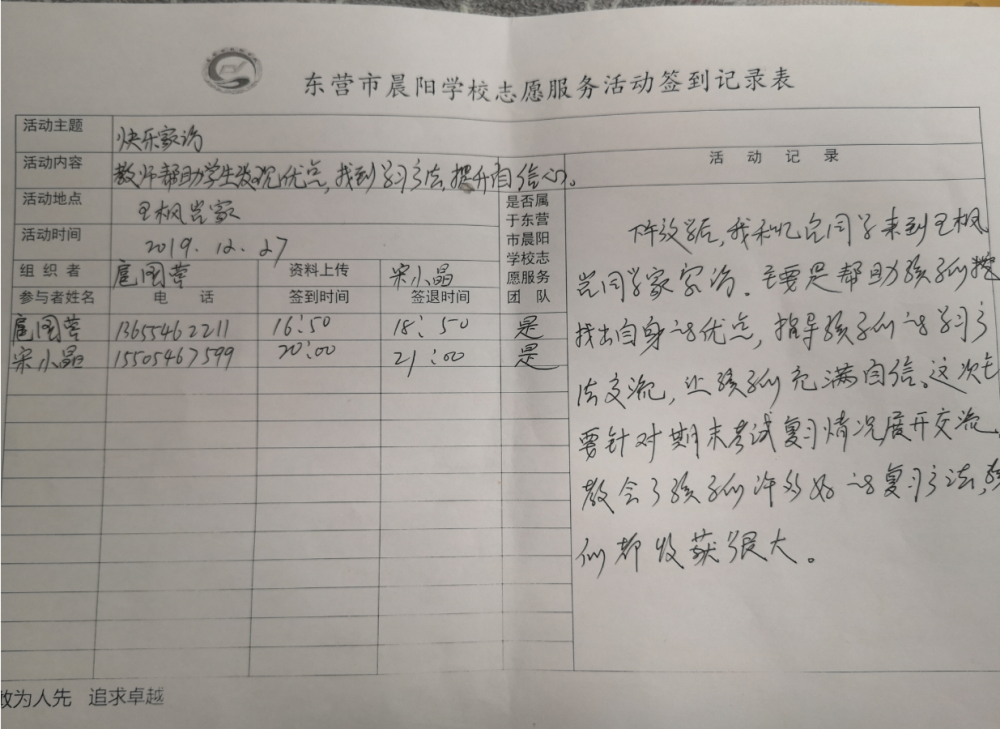 东营市晨阳学校志愿服务活动签到记录表
活动主题 快乐家访
活动内容 教师帮助学生发现优点,找到学习方法,提升自信心。
活动地点 王枫岂家
活动时间 2019.12.27
组织者 扈国萍 资料上传 宋小晶
参与者姓名 电话 签到时间 签退时间 是否属于东营市晨阳学校志愿服务团队
扈国萍 13655462211 16:50 18:50 是
宋小晶 15505467599 20:00 21:00 是
活动记录
放学后,我和忆同学来到王枫
同学家家访。主要是帮助孩子们
找出自身的优点,指导孩子们的学习方
法交流,让孩子们充满自信。这次主
要针对期末考试复习情况展开交流,
教会了孩子们许多好的复习方法,孩
们都收获很大。
敢为人先 追求卓越